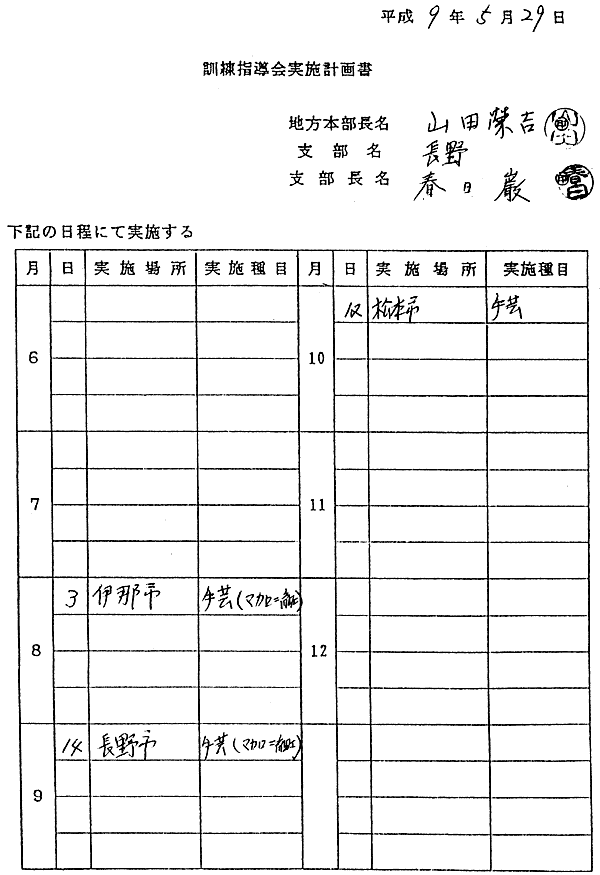 平成 9 年 5 月 29 日
訓練指導会実施計画書
地方本部長名 山田榮吉
支部名 長野
支部長名 春日 巌
下記の日程にて実施する
月 日 実施場所 実施種目 月 日 実施場所 実施種目
6
10 12 松本市 手芸
7
11
8 3 伊那市 手芸(マカロニ
12
9 14 長野市 手芸(マカロニ